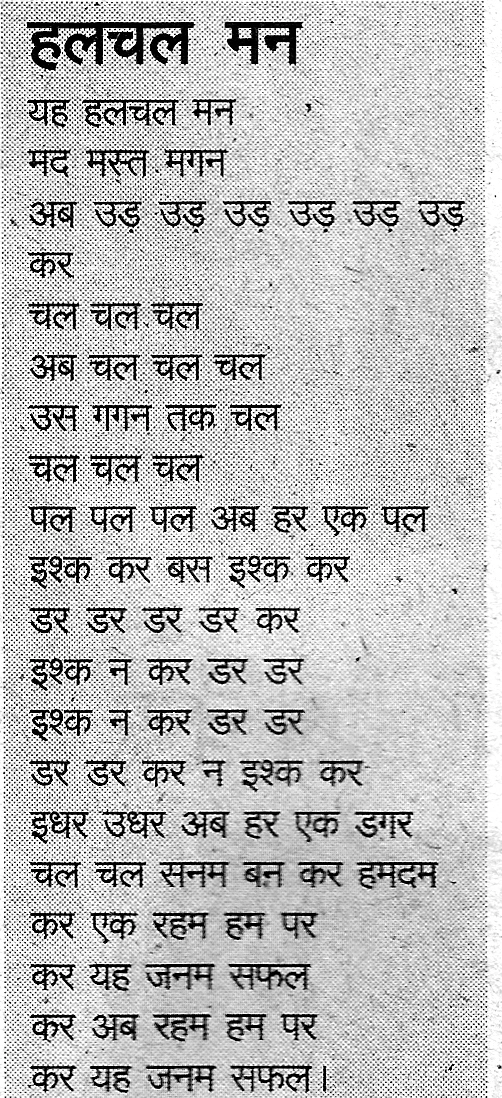 हलचल मन
यह हलचल मन
मद मस्त मगन
अब उड़ उड़ उड़ उड़ उड़ उड़
कर
चल चल चल
अब चल चल चल
उस गगन तक चल
चल चल चल
पल पल पल अब हर एक पल
इश्क कर बस इश्क कर
डर डर डर डर कर
इश्क न कर डर डर
इश्क न कर डर डर
डर डर कर न इश्क कर
इधर उधर अब हर एक डगर
चल चल सनम बन कर हमदम
कर एक रहम हम पर
कर यह जनम सफल
कर अब रहम हम पर
कर यह जनम सफल।